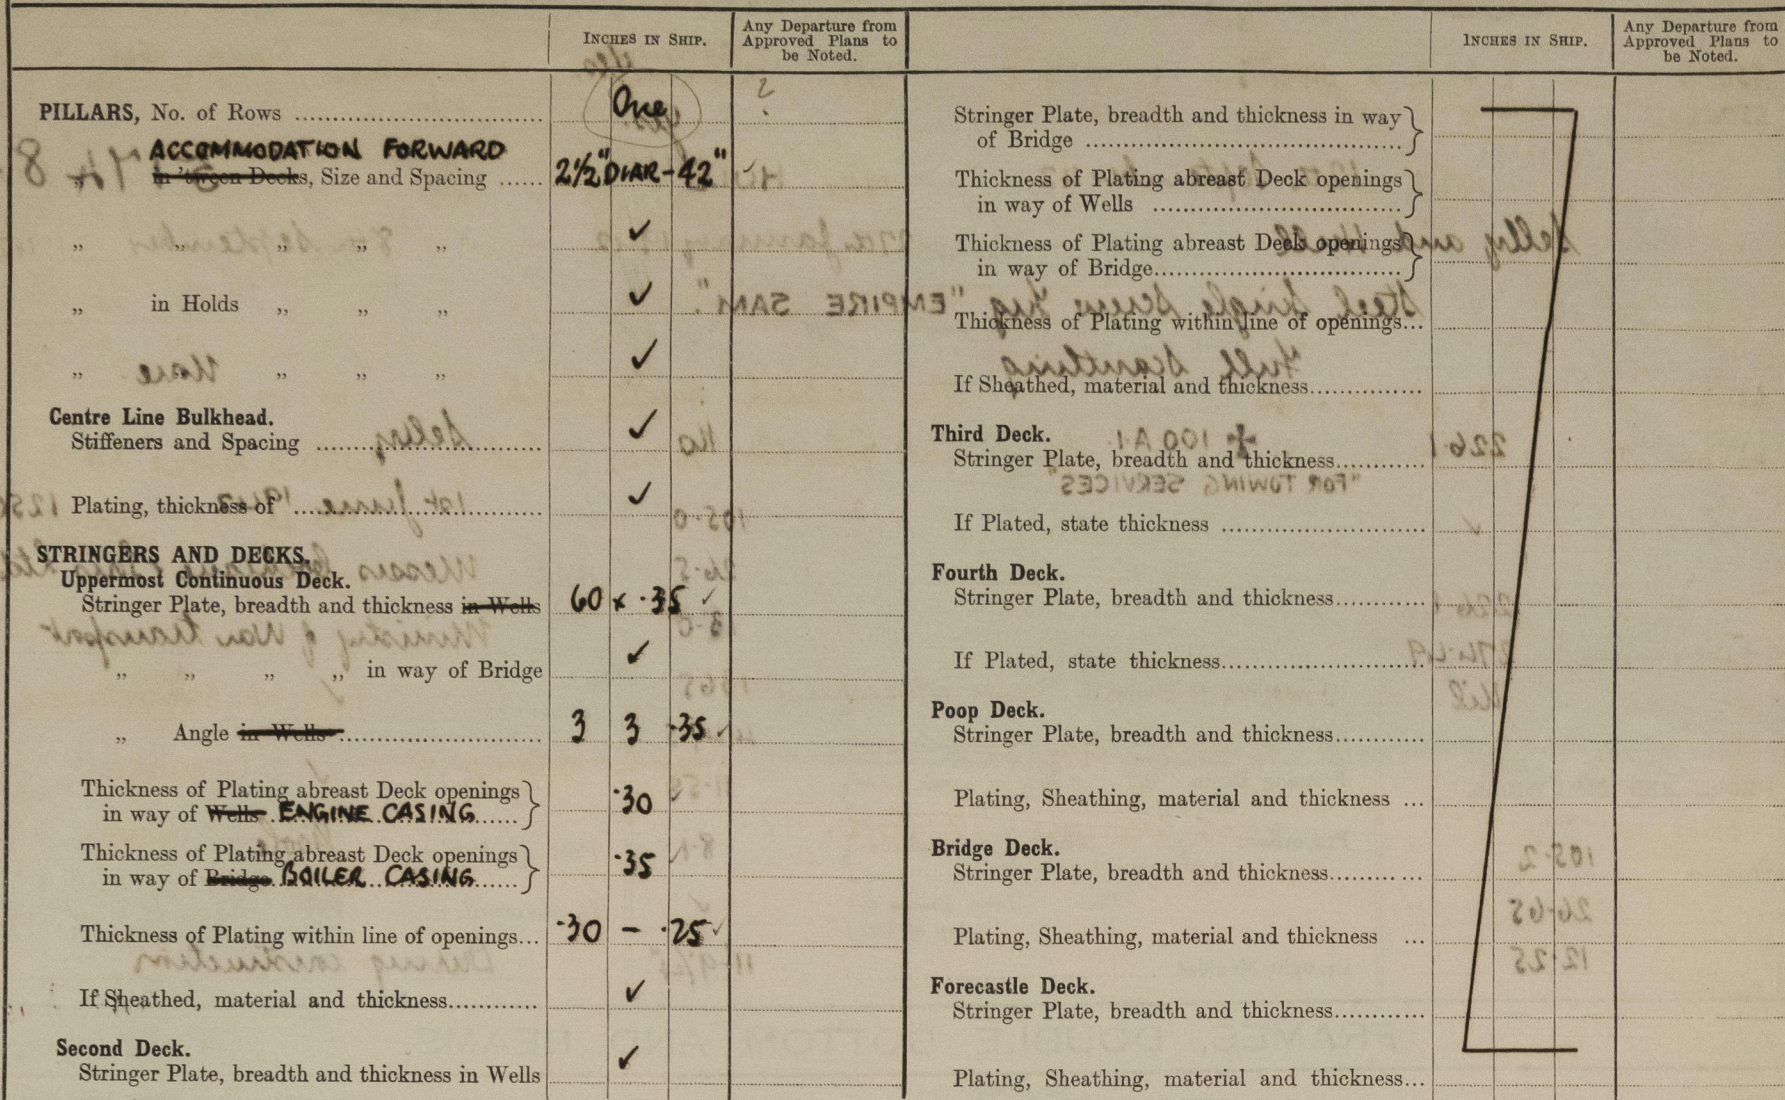 INCHES IN SHIP.
Any Departure from
Approved Plans to
be Noted.
PILLARS, No. of Rows One ?
ACCOMMODATION FORWARD
„ in 'tween Decks, Size and Spacing 2½" DIAR - 42" ✓
„ „ „ „ „ ✓
„ in Holds „ „ „ ✓
„ „ „ „ ✓
Centre Line Bulkhead.
Stiffeners and Spacing ✓
Plating, thickness of ✓
STRINGERS AND DECKS.
Uppermost Continuous Deck.
Stringer Plate, breadth and thickness in Wells 60 x .35 ✓
„ „ „ „ in way of Bridge ✓
„ Angle in Wells 3 3 .35 ✓
Thickness of Plating abreast Deck openings
in way of Wells ENGINE CASING .30 ✓
Thickness of Plating abreast Deck openings
in way of Bridge BOILER CASING .35 ✓
Thickness of Plating within line of openings... .30 - .25 ✓
If Sheathed, material and thickness ✓
Second Deck.
Stringer Plate, breadth and thickness in Wells ✓
INCHES IN SHIP.
Any Departure from
Approved Plans to
be Noted.
Stringer Plate, breadth and thickness in way
of Bridge
Thickness of Plating abreast Deck openings
in way of Wells
Thickness of Plating abreast Deck openings
in way of Bridge
Thickness of Plating within line of openings...
If Sheathed, material and thickness
Third Deck.
Stringer Plate, breadth and thickness
If Plated, state thickness
Fourth Deck.
Stringer Plate, breadth and thickness
If Plated, state thickness
Poop Deck.
Stringer Plate, breadth and thickness
Plating, Sheathing, material and thickness ...
Bridge Deck.
Stringer Plate, breadth and thickness
Plating, Sheathing, material and thickness ...
Forecastle Deck.
Stringer Plate, breadth and thickness
Plating, Sheathing, material and thickness...